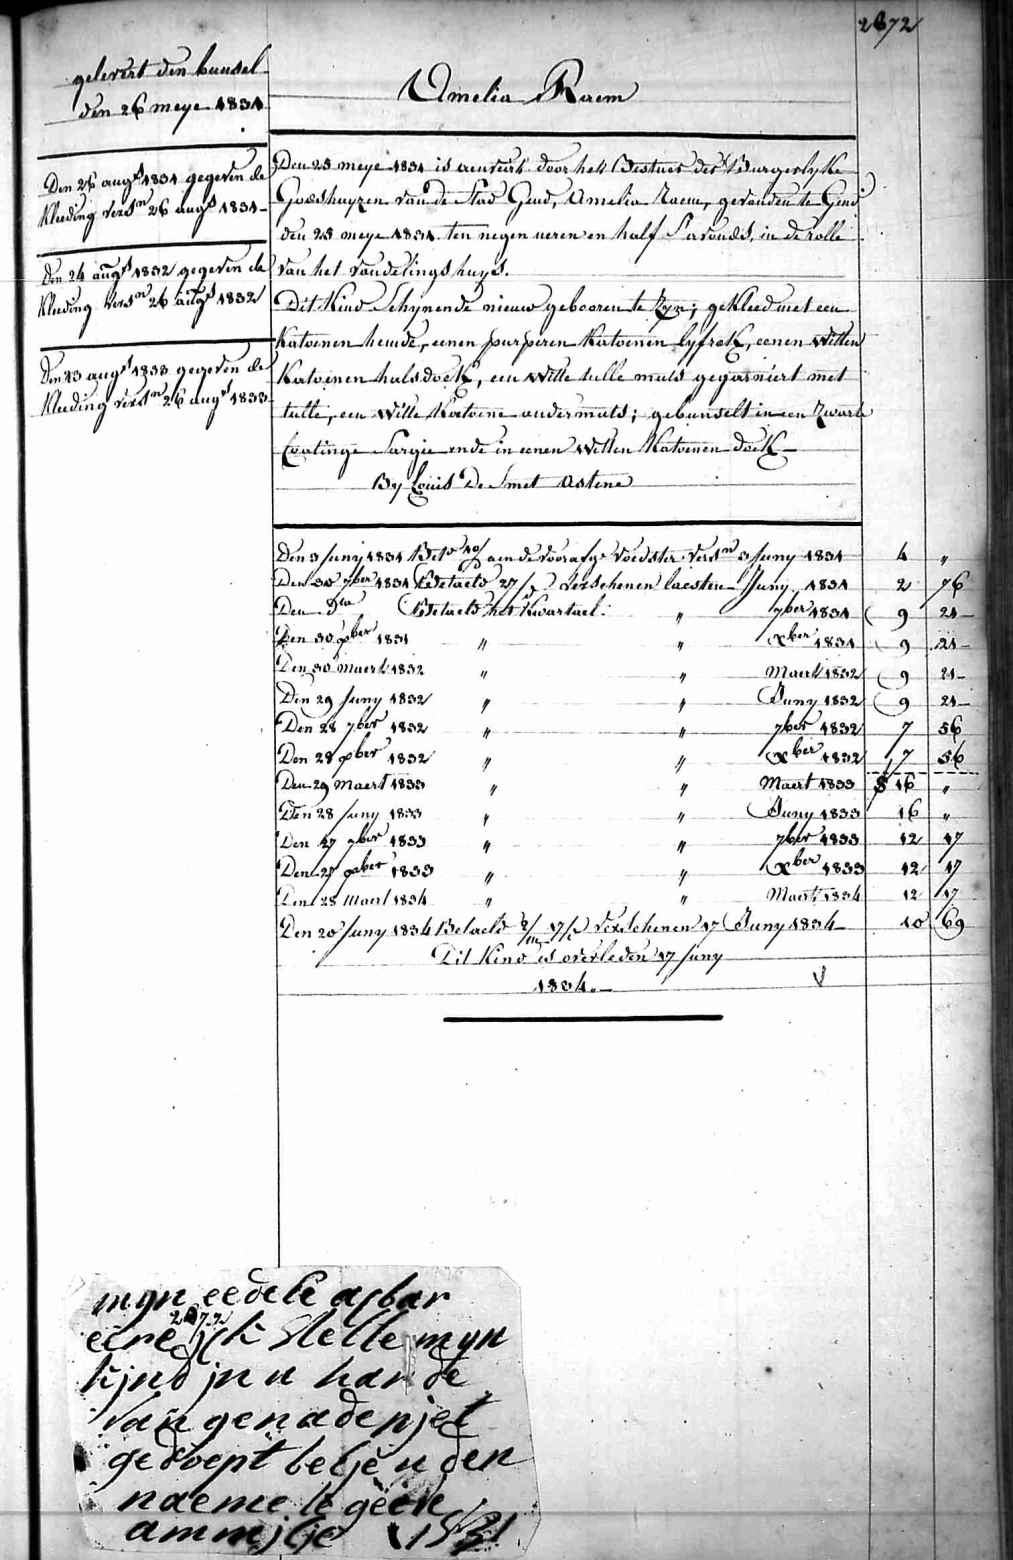 2872
gelevert den bunsel
den 26 meye 1831
Amelia Raem
Den 26 augs 1831 gegeven de
kleeding versn 26 augs 1831
Den 24 augs 1832 gegeven de
kleeding versn 26 augs 1832
Den 23 augs 1833 gegeven de
kleeding versn 26 augs 1833
Den 25 meye 1831 is aenveirt door het Bestuer der Burgerlyke
Godshuyzen van de Stad Gend, Amelia Raem, gevonden te Gend
den 25 meye 1831 ten negen ueren en half S'avonds, in de rolle
van het vondelingshuys.
Dit Kind Schynende nieuw gebooren te Zyn; gekleed met een
Katoenen hemde, eenen purperen Katoenen lyfrok, eenen Witten
Katoenen halsdoek, een Witte tulle muts gegarniert met
tulle, een Witte Katoene ondermuts; gebunselt in een Zwarte
Coatinge Sargie ende in eenen Witten Katoenen doek
By Louis De Smet Astene
Den 3 Juny 1831 aen de voorafge voedster versn 3 Juny 1831 4 "
Den 30 7ber 1831 Betaeld 27/ Verschenen laesten Juny 1831 2 76
Den Dto Betaeld het Kwartael " 7ber 1831 9 21
Den 30 xber 1831 " " Xber 1831 9 21
Den 30 Maert 1832 " " Maert 1832 9 21
Den 29 Juny 1832 " " Juny 1832 9 21
Den 28 7ber 1832 " " 7ber 1832 7 56
Den 28 xber 1832 " " Xber 1832 7 56
Den 29 Maert 1833 " " Maert 1833 16 "
Den 28 Juny 1833 " " Juny 1833 16 "
Den 27 7ber 1833 " " 7ber 1833 12 17
Den 27 xber 1833 " " Xber 1833 12 17
Den 28 Maert 1834 " " Maert 1834 12 17
Den 20 Juny 1834 Betaeld 2/m 17/ Verschenen 17 Juny 1834 10 69
Dit Kind is overleden 17 Juny
1834.
mijn eedele agbar
2872
eere yck stelle myn
kjnd jn u hande
van genade njet
gedoept belje u den
naeme te geeve
ammjlje 1831